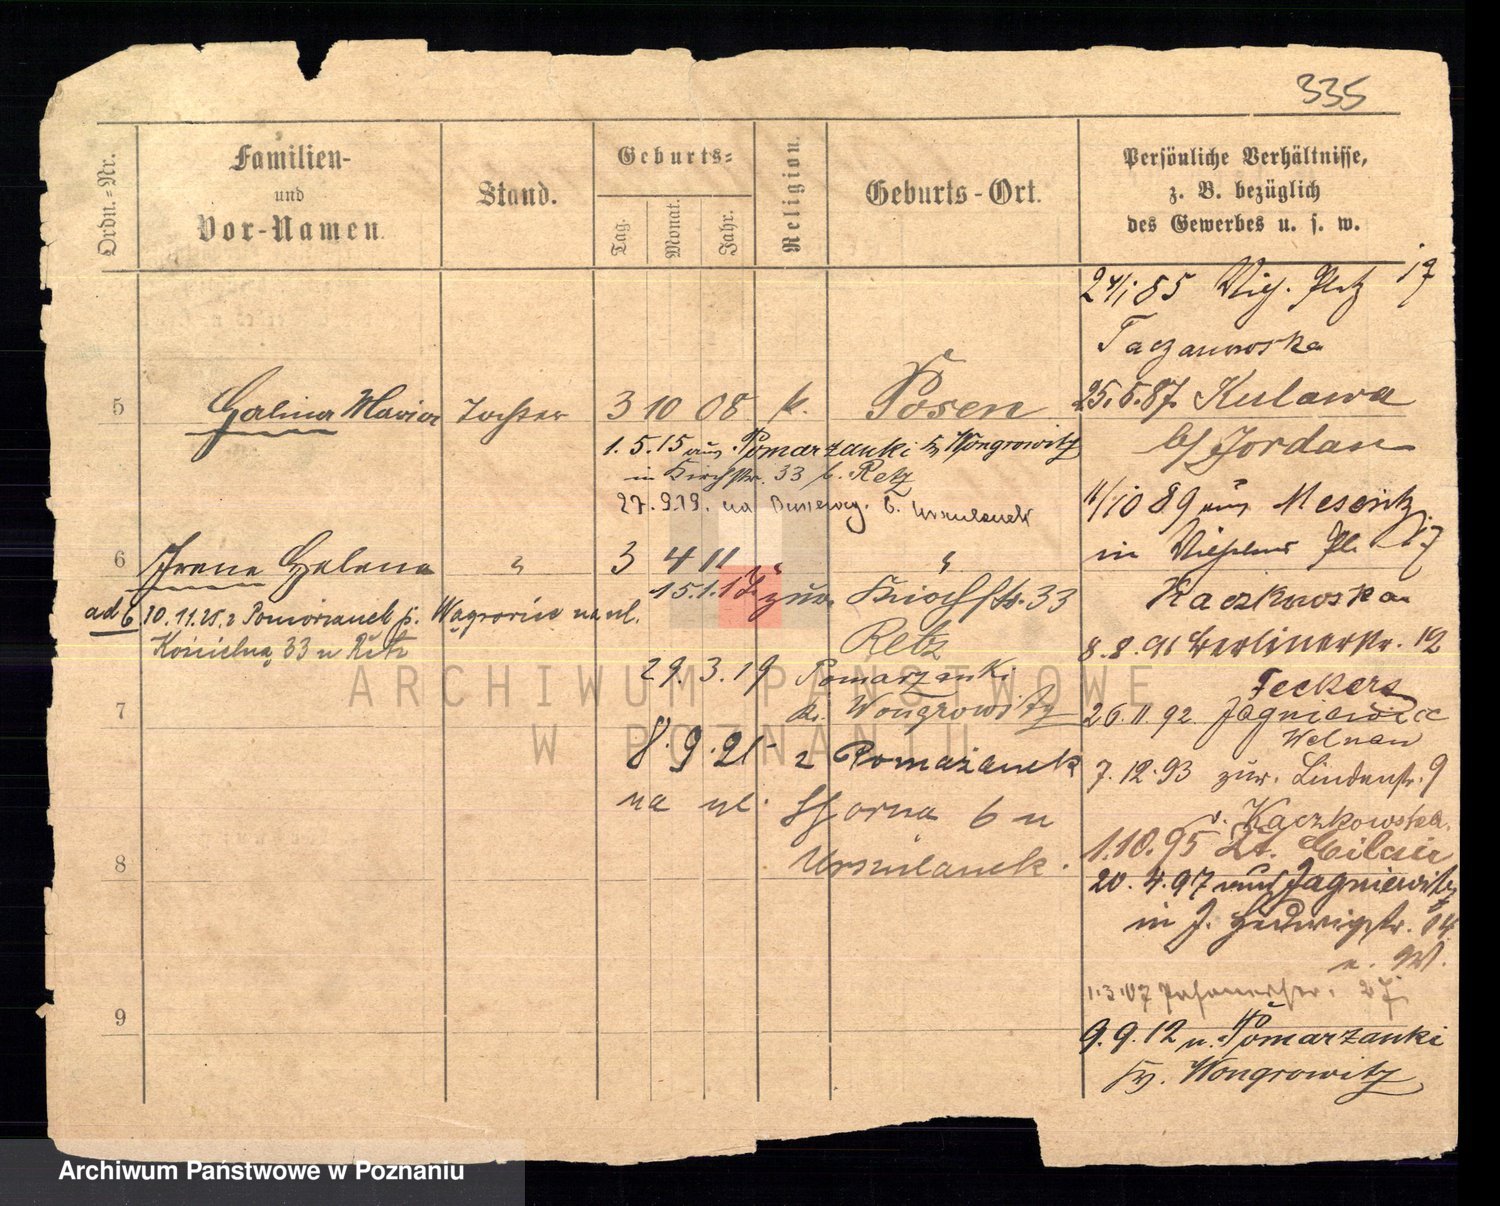 335
Ordn.-Nr.
Familien-
und
Vor-Namen.
Stand.
Geburts-
Tag.
Monat.
Jahr.
Religion.
Geburts-Ort.
Persönliche Verhältnisse,
z. B. bezüglich
des Gewerbes u. s. w.
24/1 85 Wilh. Platz 17
Taczanowska
5 Halina Maria Tochter 3 10 08 k. Posen
25.5.87. Kulawa
b/ Jordan
1.5.15 aus Pomarzanki Kr. Wongrowitz
in Kirchstr. 33 b. Retz
27.9.19. na b. Urszulanek
11/10 89 aus Meseritz
in Wilhelms Pl. 17
Kaczkowska
6 Irene Helena " 3 4 11 " "
15.1.17. zur. Kirchstr. 33
Retz
ad 6 10.11.25. z Pomorzanek p. Wągrowiec na ul.
Kościelną 33 u Retz
8.8.91 Berlinerstr. 19
Feckers
29.3.19 Pomarzanki
Kr. Wongrowitz
26.11 92 Jagniewice
Welnau
7
8.9.21 z Pomażanek
na ul. 6 u
Urszulanek.
7.12.93 zur. Lindenstr. 9
v. Kaczkowska.
1.10.95
8
20.4.97 aus Jagniewitz
in J. Hedwigstr. 14
1.3.07 27
9
9.9.12 n. Pomarzanki
Kr. Wongrowitz
ARCHIWUM PAŃSTWOWE
W POZNANIU
Archiwum Państwowe w Poznaniu